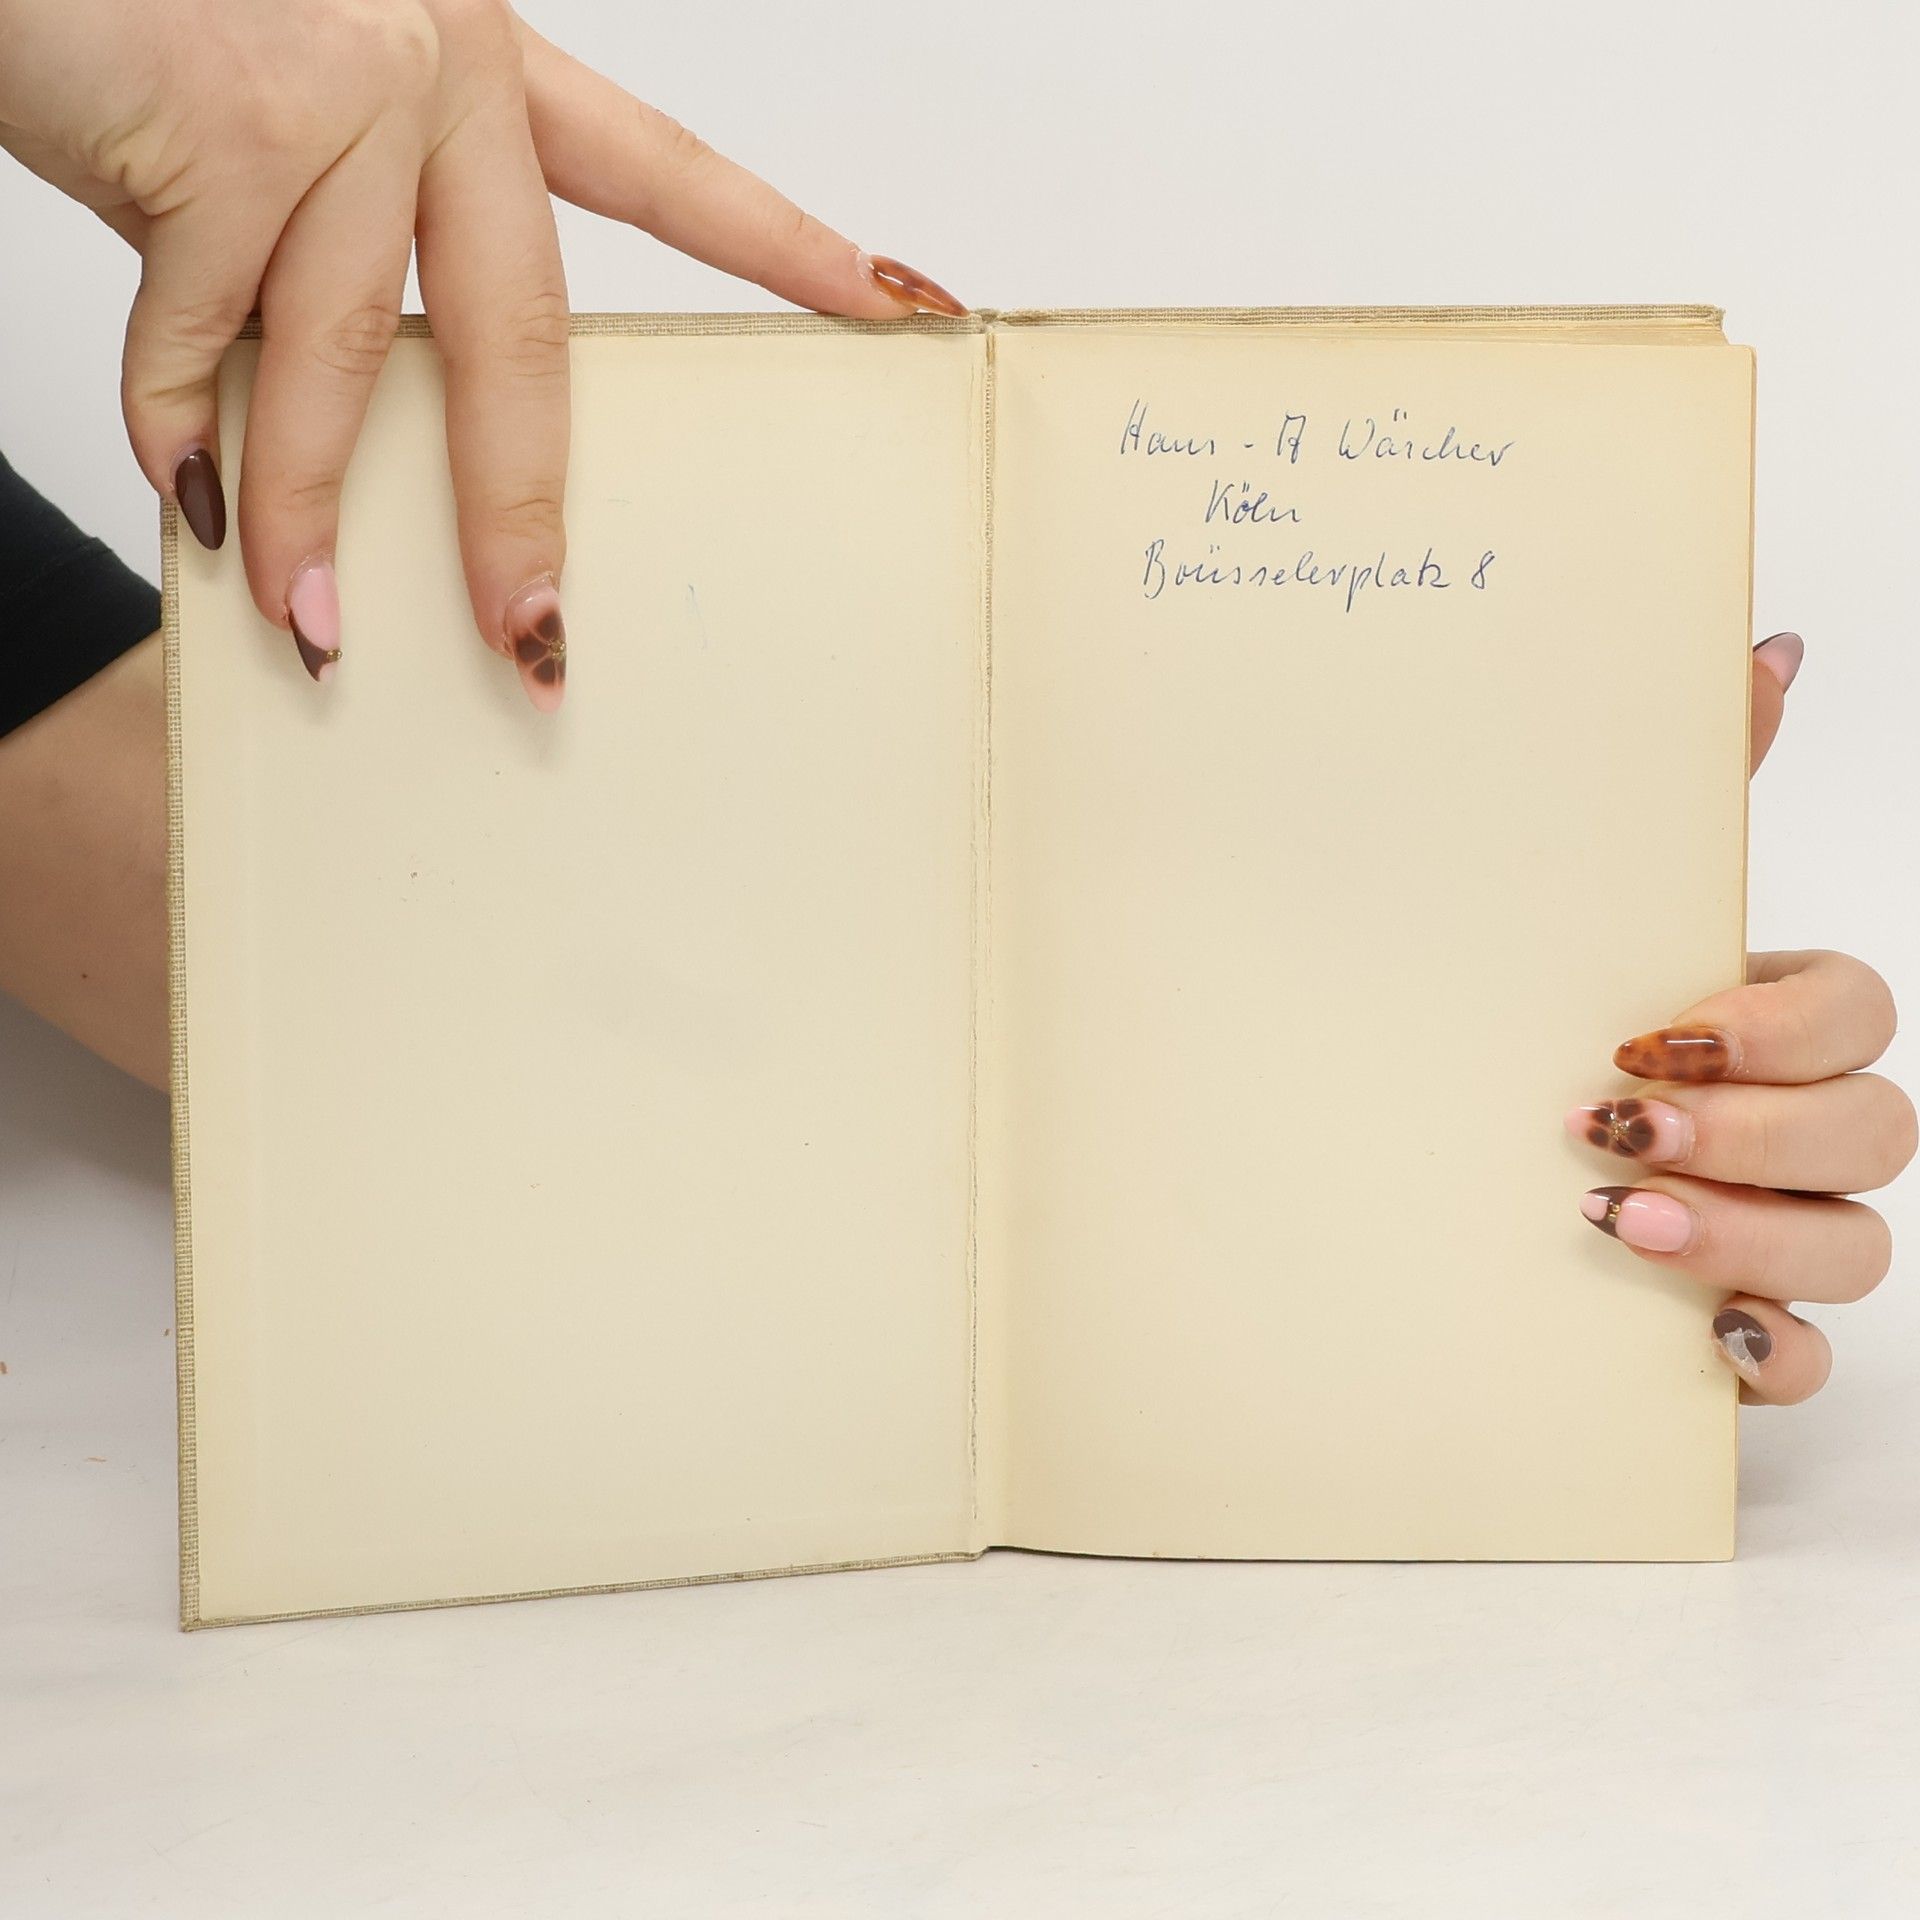 Hans - A Wäscher
Köln
Brüsselerplatz 8